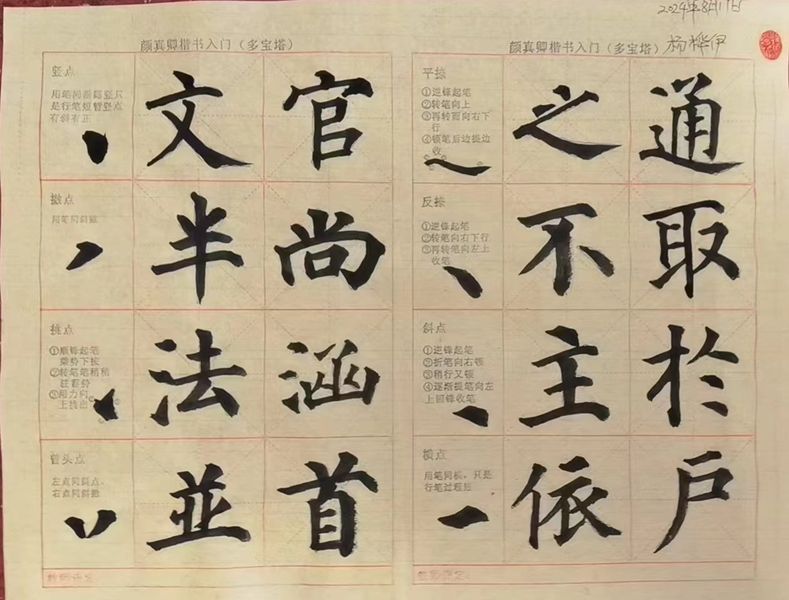 2024年8月17日
杨桦伊
颜真卿楷书入门（多宝塔）
竖点
用笔同前即竖只
是行笔短暂竖点
有斜有正
文
官
撇点
用笔同斜撇
半
尚
挑点
①顺锋起笔
乘势下按
②转笔笔稍稍
驻蓄势
③用力向
上挑出
法
涵
管头点
左点同斜点，
右点同斜撇
並
首
颜真卿楷书入门（多宝塔）
平捺
①逆锋起笔
②转笔向上
③再转而向右下
行
④顿笔后边提边
收
之
通
反捺
①逆锋起笔
②转笔向右下行
③再转笔向左上
收笔
不
取
斜点
①逆锋起笔
②折笔向右顿
③稍行又顿
④逐渐提笔向左
上回锋收笔
主
於
横点
用笔同横，只是
行笔过程短
依
户